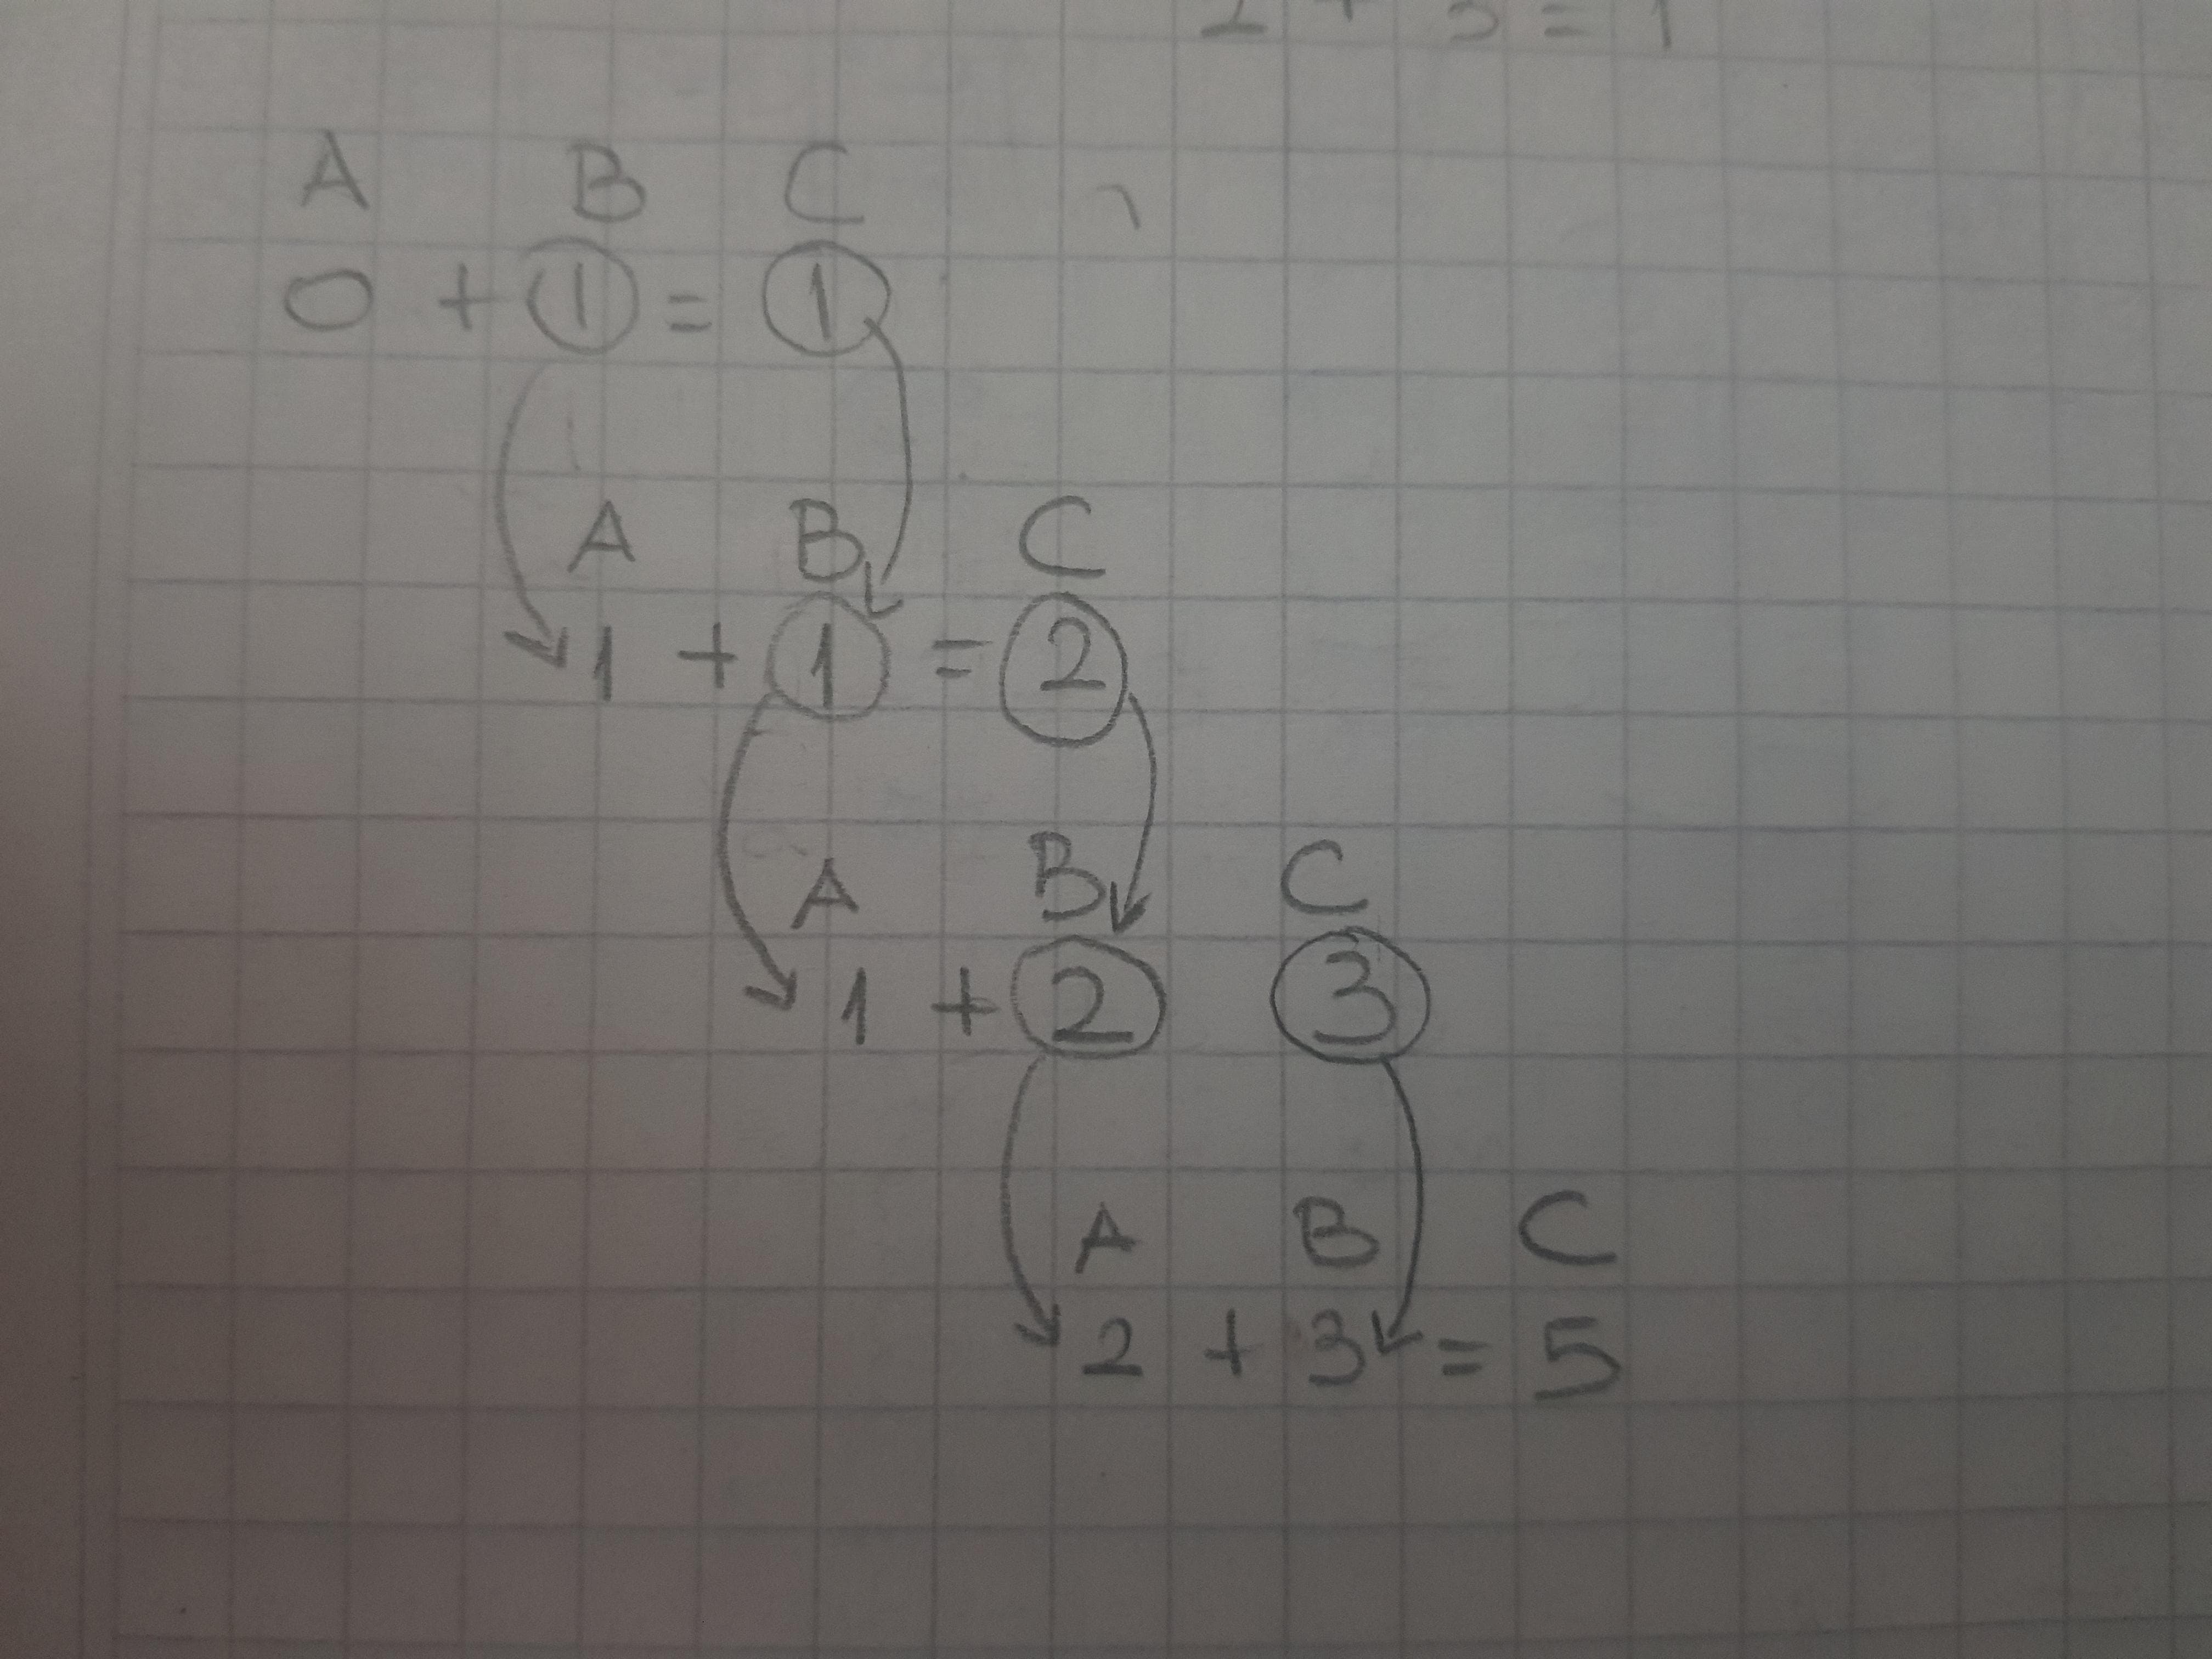 2 + 3 = 1
A B C
0 + 1 = 1
A B C
1 + 1 = 2
A B C
1 + 2 3
A B C
2 + 3 = 5